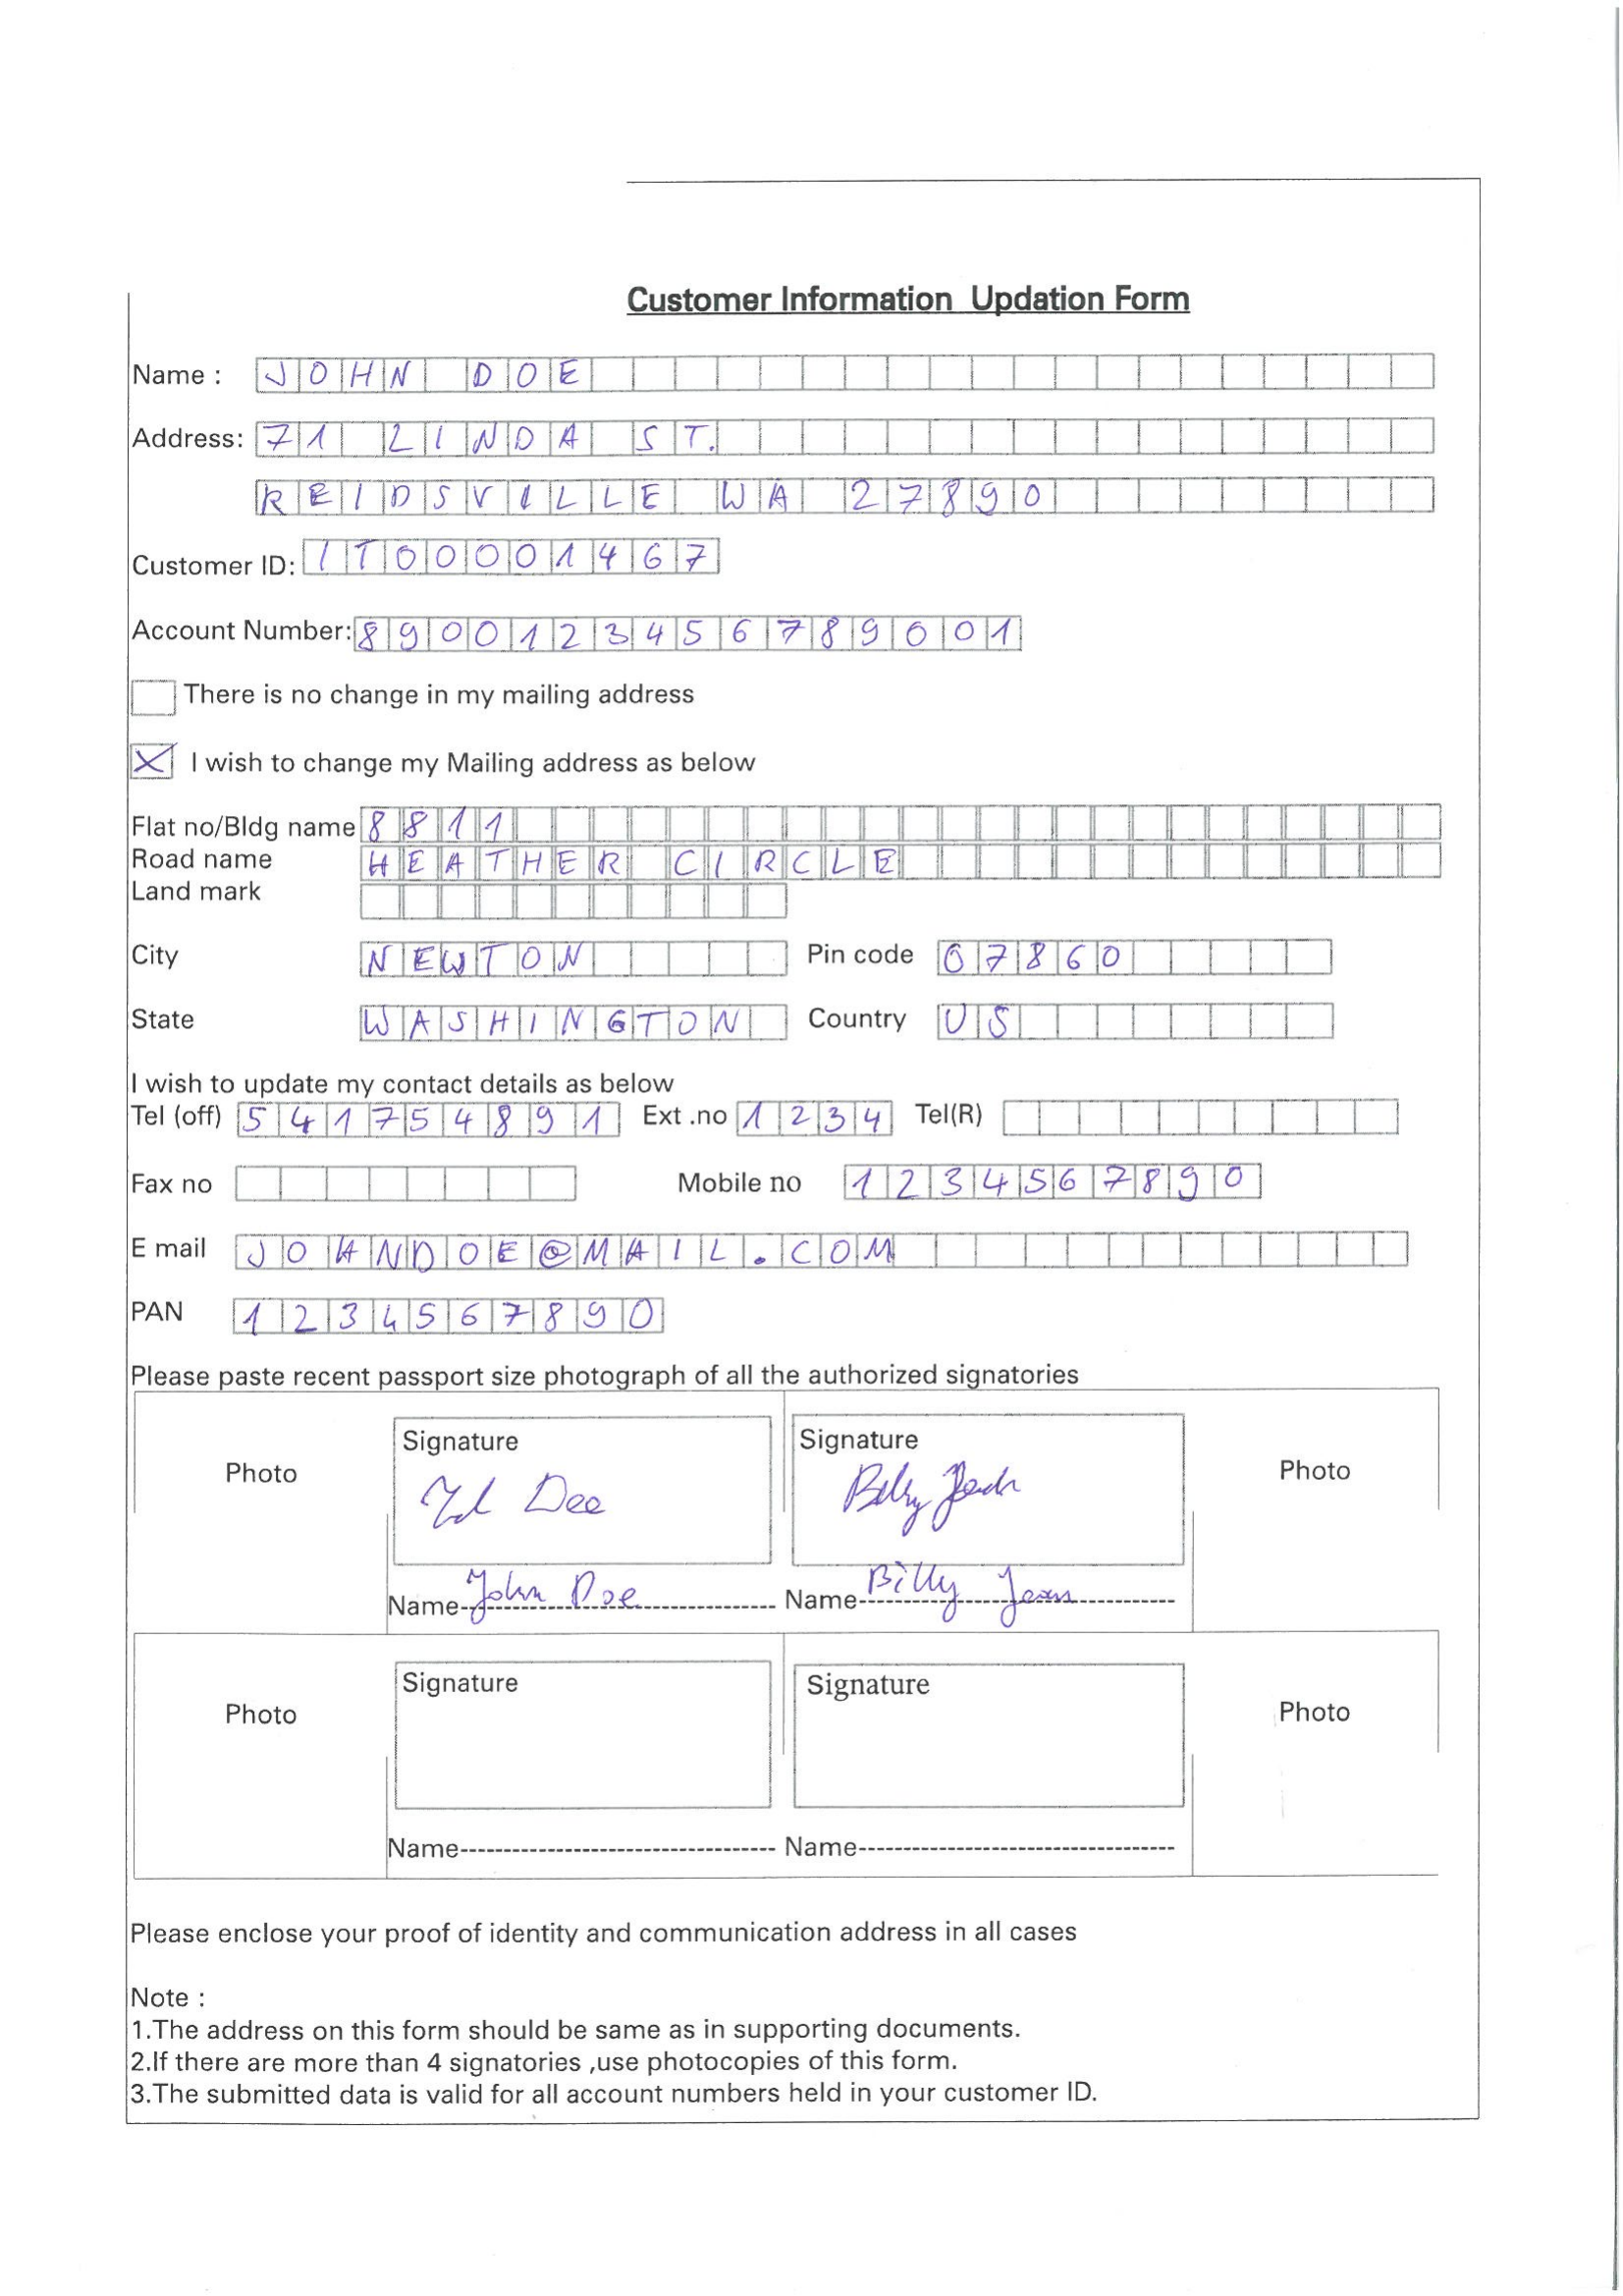 Customer Information Updation Form
Name : JOHN DOE
Address: 71 LINDA ST.
REIDSVILLE WA 27890
Customer ID: IT00001467
Account Number: 8900123456789001
There is no change in my mailing address
I wish to change my Mailing address as below
Flat no/Bldg name 8811
Road name HEATHER CIRCLE
Land mark
City NEWTON Pin code 07860
State WASHINGTON Country US
I wish to update my contact details as below
Tel (off) 541754891 Ext .no 1234 Tel(R)
Fax no Mobile no 1234567890
E mail JOHNDOE@MAIL.COM
PAN 1234567890
Please paste recent passport size photograph of all the authorized signatories
Signature Signature
Photo Photo
Name John Doe Name Billy Jean
Signature Signature
Photo Photo
Name Name
Please enclose your proof of identity and communication address in all cases
Note :
1.The address on this form should be same as in supporting documents.
2.If there are more than 4 signatories ,use photocopies of this form.
3.The submitted data is valid for all account numbers held in your customer ID.